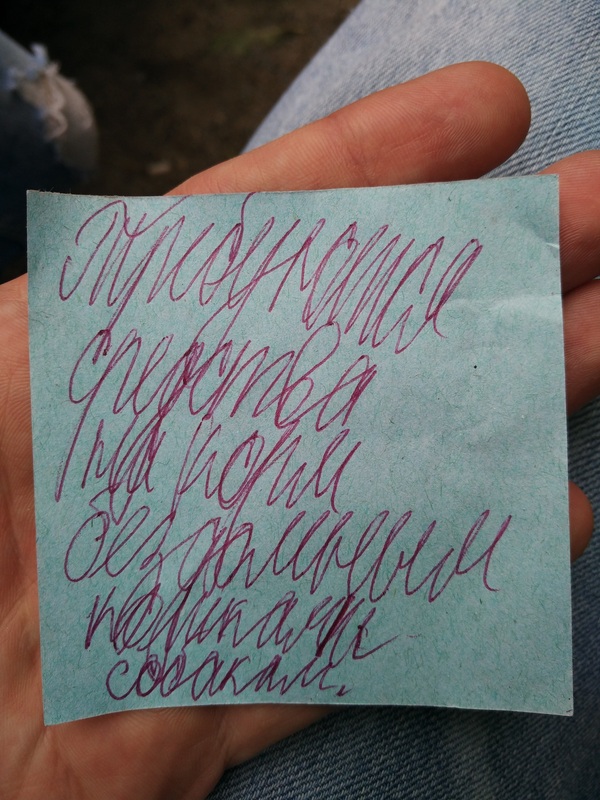 Требуются
средства
на корм
бездомным
кошкам и
собакам.